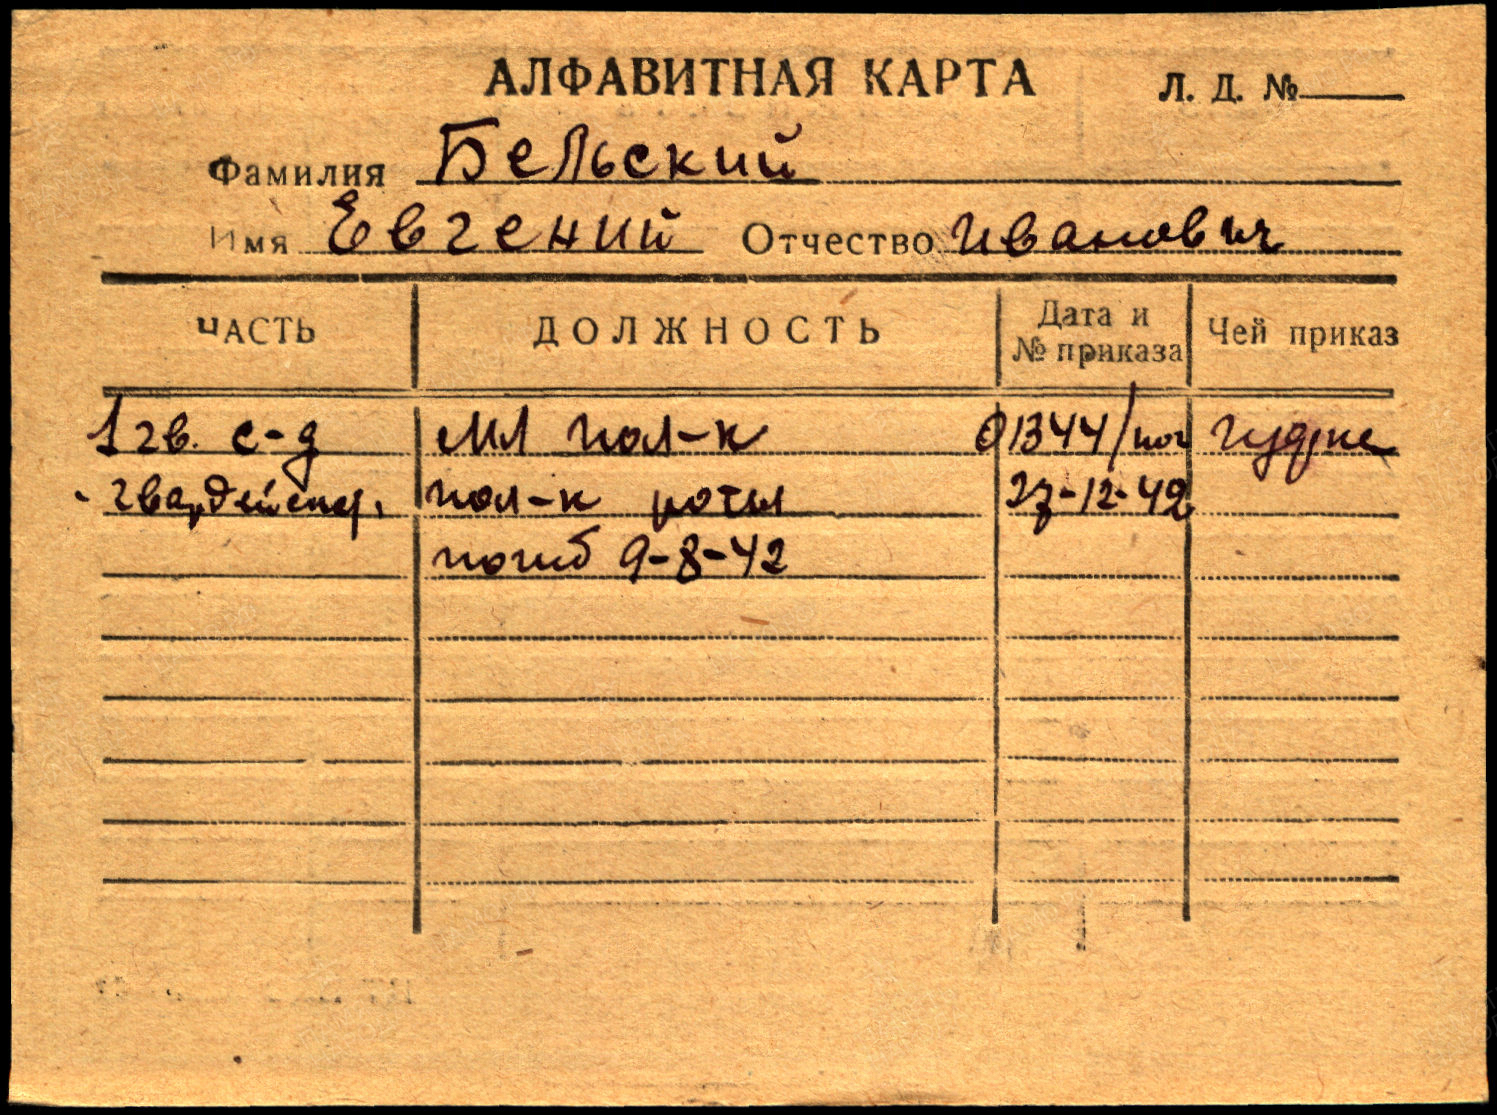 АЛФАВИТНАЯ КАРТА Л. Д. №
Фамилия Бельский
Имя Евгений Отчество Иванович
ЧАСТЬ ДОЛЖНОСТЬ Дата и № приказа Чей приказ
1 гв. с-д мл пол-к 01344/пог
гвардейск. пол-к роты 27-12-42
погиб 9-8-42